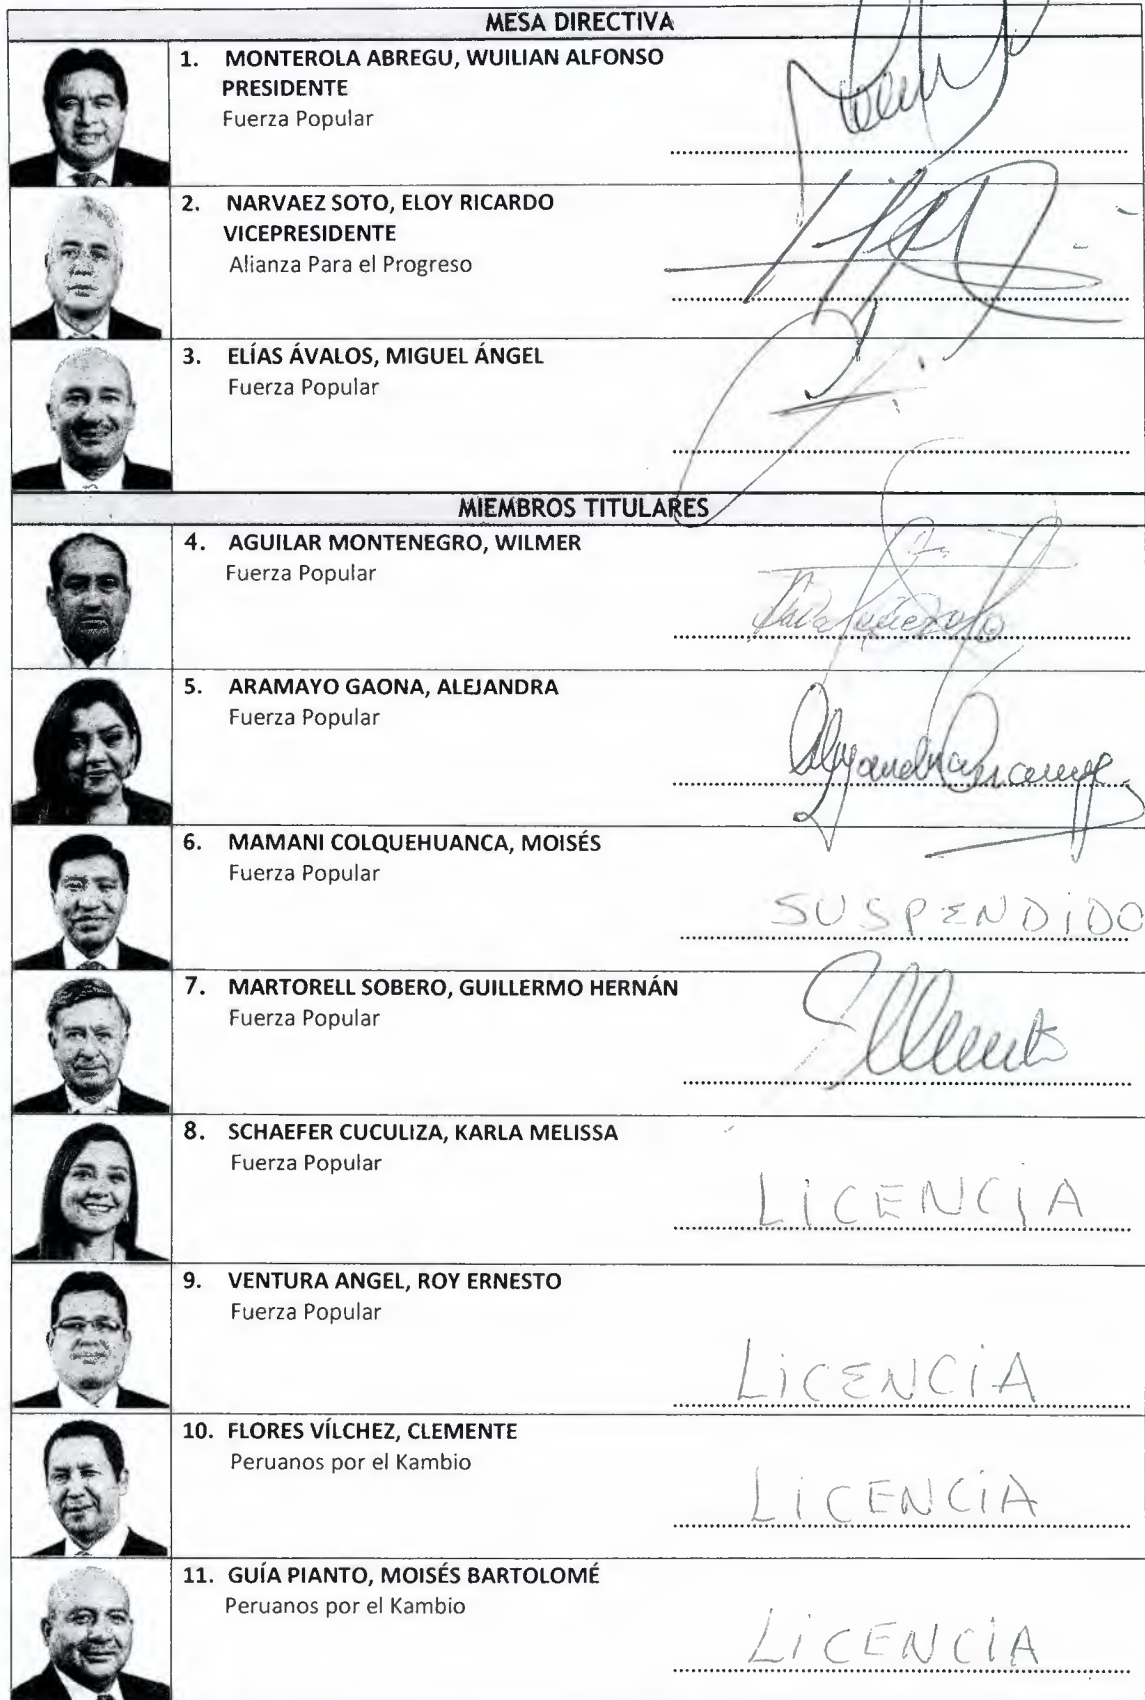 MESA DIRECTIVA
1. MONTEROLA ABREGU, WUILIAN ALFONSO
PRESIDENTE
Fuerza Popular
2. NARVAEZ SOTO, ELOY RICARDO
VICEPRESIDENTE
Alianza Para el Progreso
3. ELÍAS ÁVALOS, MIGUEL ÁNGEL
Fuerza Popular
MIEMBROS TITULARES
4. AGUILAR MONTENEGRO, WILMER
Fuerza Popular
5. ARAMAYO GAONA, ALEJANDRA
Fuerza Popular
6. MAMANI COLQUEHUANCA, MOISÉS
Fuerza Popular
SUSPENDiDO
7. MARTORELL SOBERO, GUILLERMO HERNÁN
Fuerza Popular
8. SCHAEFER CUCULIZA, KARLA MELISSA
Fuerza Popular
LiCENCiA
9. VENTURA ANGEL, ROY ERNESTO
Fuerza Popular
LiCENCiA
10. FLORES VÍLCHEZ, CLEMENTE
Peruanos por el Kambio
LiCENCiA
11. GUÍA PIANTO, MOISÉS BARTOLOMÉ
Peruanos por el Kambio
LiCENCiA